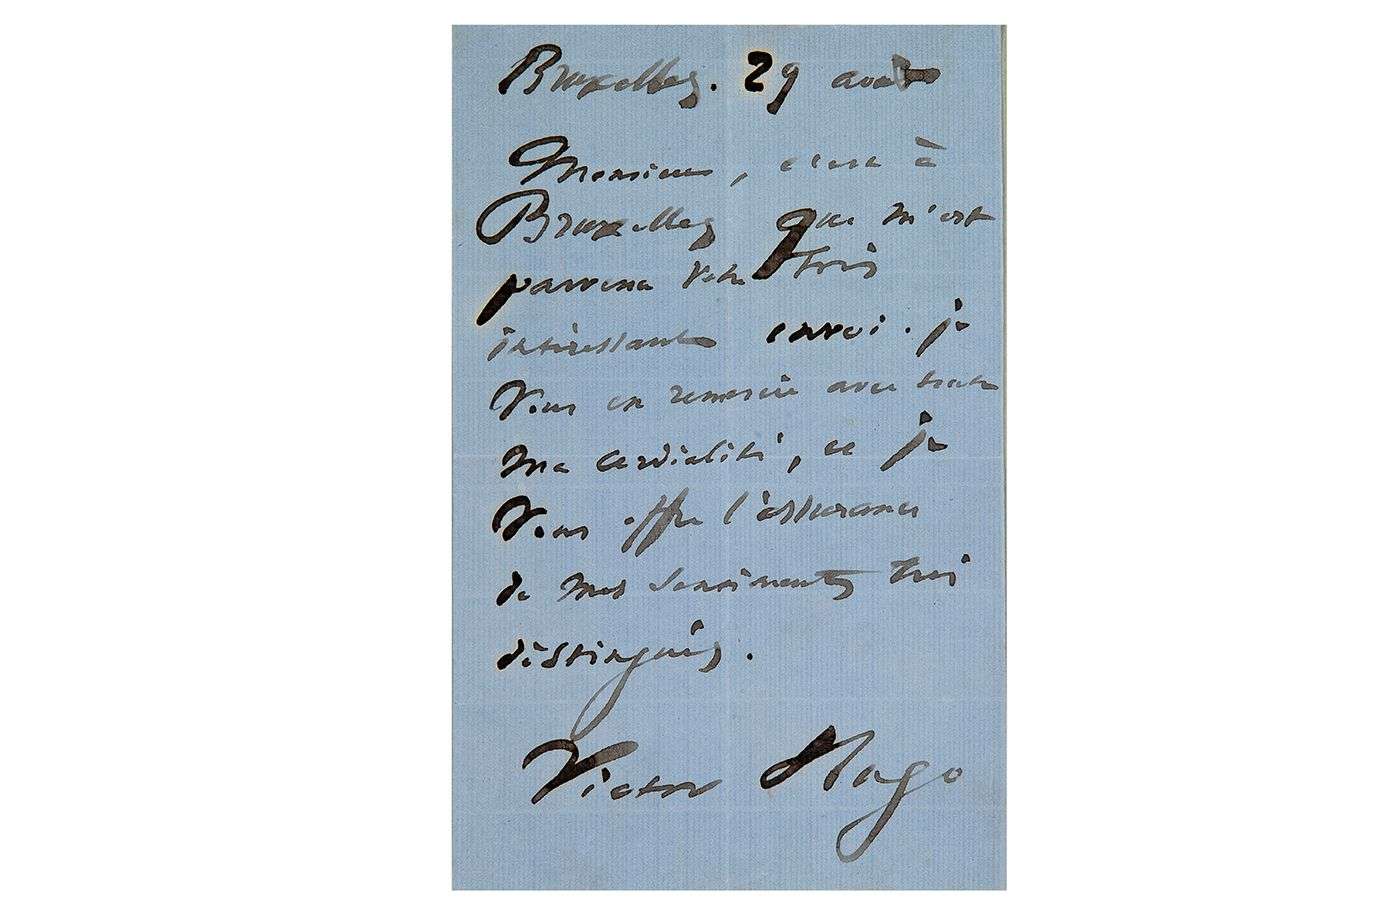 Bruxelles. 29 août
Monsieur, c'est à
Bruxelles que m'est
parvenu votre très
intéressant envoi. je
vous en remercie avec toute
ma cordialité, et je
vous offre l'assurance
de mes sentiments très
distingués.
Victor Hugo